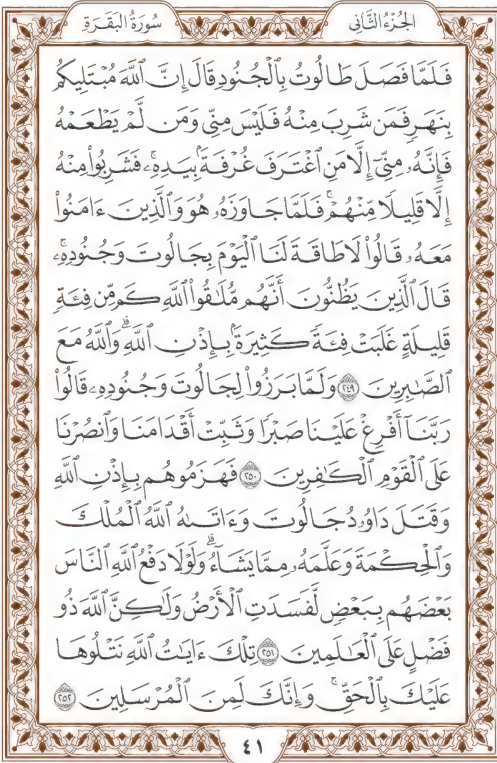 الجُزْءُ الثَّانِي
سُورَةُ البَقَرَةِ
فَلَمَّا فَصَلَ طَالُوتُ بِٱلْجُنُودِ قَالَ إِنَّ ٱللَّهَ مُبْتَلِيكُم
بِنَهَرٍ فَمَن شَرِبَ مِنْهُ فَلَيْسَ مِنِّي وَمَن لَّمْ يَطْعَمْهُ
فَإِنَّهُۥ مِنِّيٓ إِلَّا مَنِ ٱغْتَرَفَ غُرْفَةَۢ بِيَدِهِۦۚ فَشَرِبُواْ مِنْهُ
إِلَّا قَلِيلٗا مِّنْهُمْۚ فَلَمَّا جَاوَزَهُۥ هُوَ وَٱلَّذِينَ ءَامَنُواْ
مَعَهُۥ قَالُواْ لَا طَاقَةَ لَنَا ٱلْيَوْمَ بِجَالُوتَ وَجُنُودِهِۦۚ
قَالَ ٱلَّذِينَ يَظُنُّونَ أَنَّهُم مُّلَٰقُواْ ٱللَّهِ كَم مِّن فِئَةٖ
قَلِيلَةٍ غَلَبَتْ فِئَةٗ كَثِيرَةَۢ بِإِذْنِ ٱللَّهِۗ وَٱللَّهُ مَعَ
ٱلصَّٰبِرِينَ ٢٤٩ وَلَمَّا بَرَزُواْ لِجَالُوتَ وَجُنُودِهِۦ قَالُواْ
رَبَّنَآ أَفْرِغْ عَلَيْنَا صَبْرٗا وَثَبِّتْ أَقْدَامَنَا وَٱنصُرْنَا
عَلَى ٱلْقَوْمِ ٱلْكَٰفِرِينَ ٢٥٠ فَهَزَمُوهُم بِإِذْنِ ٱللَّهِ
وَقَتَلَ دَاوُۥدُ جَالُوتَ وَءَاتَىٰهُ ٱللَّهُ ٱلْمُلْكَ
وَٱلْحِكْمَةَ وَعَلَّمَهُۥ مِمَّا يَشَآءُۗ وَلَوْلَا دَفْعُ ٱللَّهِ ٱلنَّاسَ
بَعْضَهُم بِبَعْضٖ لَّفَسَدَتِ ٱلْأَرْضُ وَلَٰكِنَّ ٱللَّهَ ذُو
فَضْلٍ عَلَى ٱلْعَٰلَمِينَ ٢٥١ تِلْكَ ءَايَٰتُ ٱللَّهِ نَتْلُوهَا
عَلَيْكَ بِٱلْحَقِّۚ وَإِنَّكَ لَمِنَ ٱلْمُرْسَلِينَ ٢٥٢
٤١